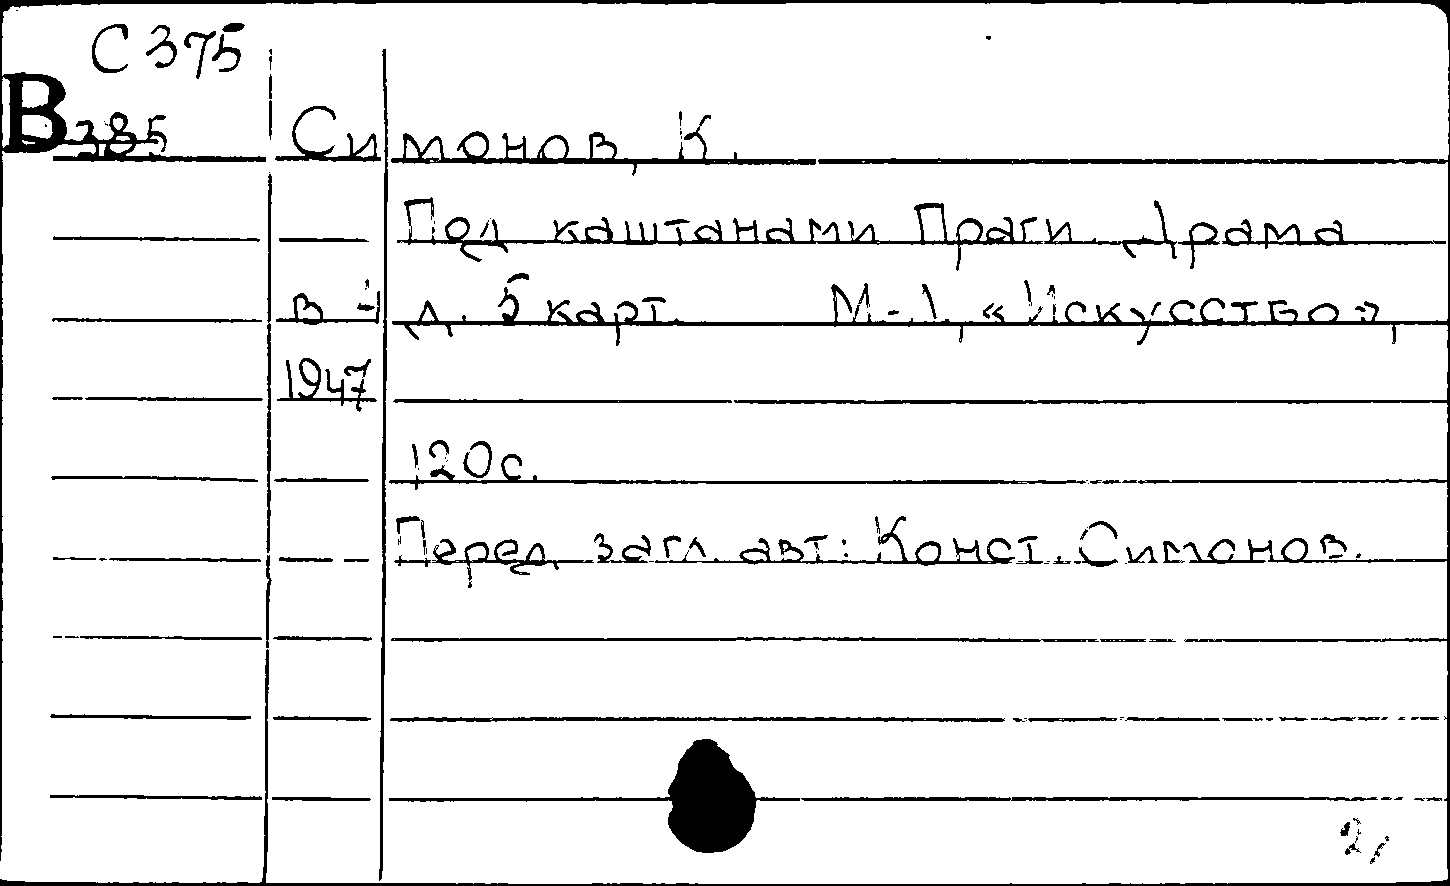 С 375
В 385
Симонов, К.
Под каштанами Праги. Драма
в 4 д. 5 карт. М.-Л., «Искусство»,
1947
120 с.
Перед загл. авт: Конст. Симонов.